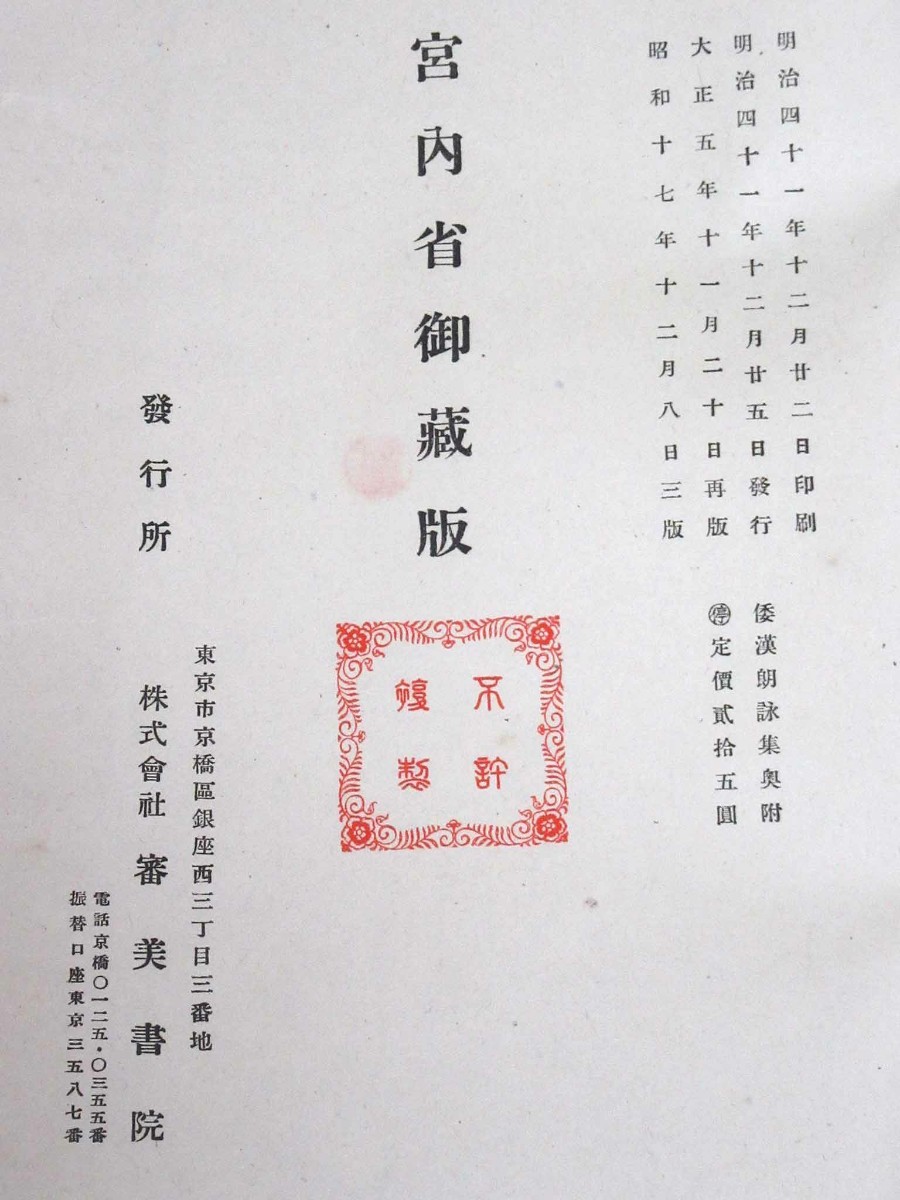 明治四十一年十二月廿二日印刷
明治四十一年十二月廿五日發行
大正五年十一月二十日再版
昭和十七年十二月八日三版
倭漢朗詠集奥附
㊡定價貳拾五圓
宮內省御藏版
不許
複製
發行所
東京市京橋區銀座西三丁目三番地
株式會社審美書院
電話京橋〇一二五・〇三五五番
振替口座東京三五八七番